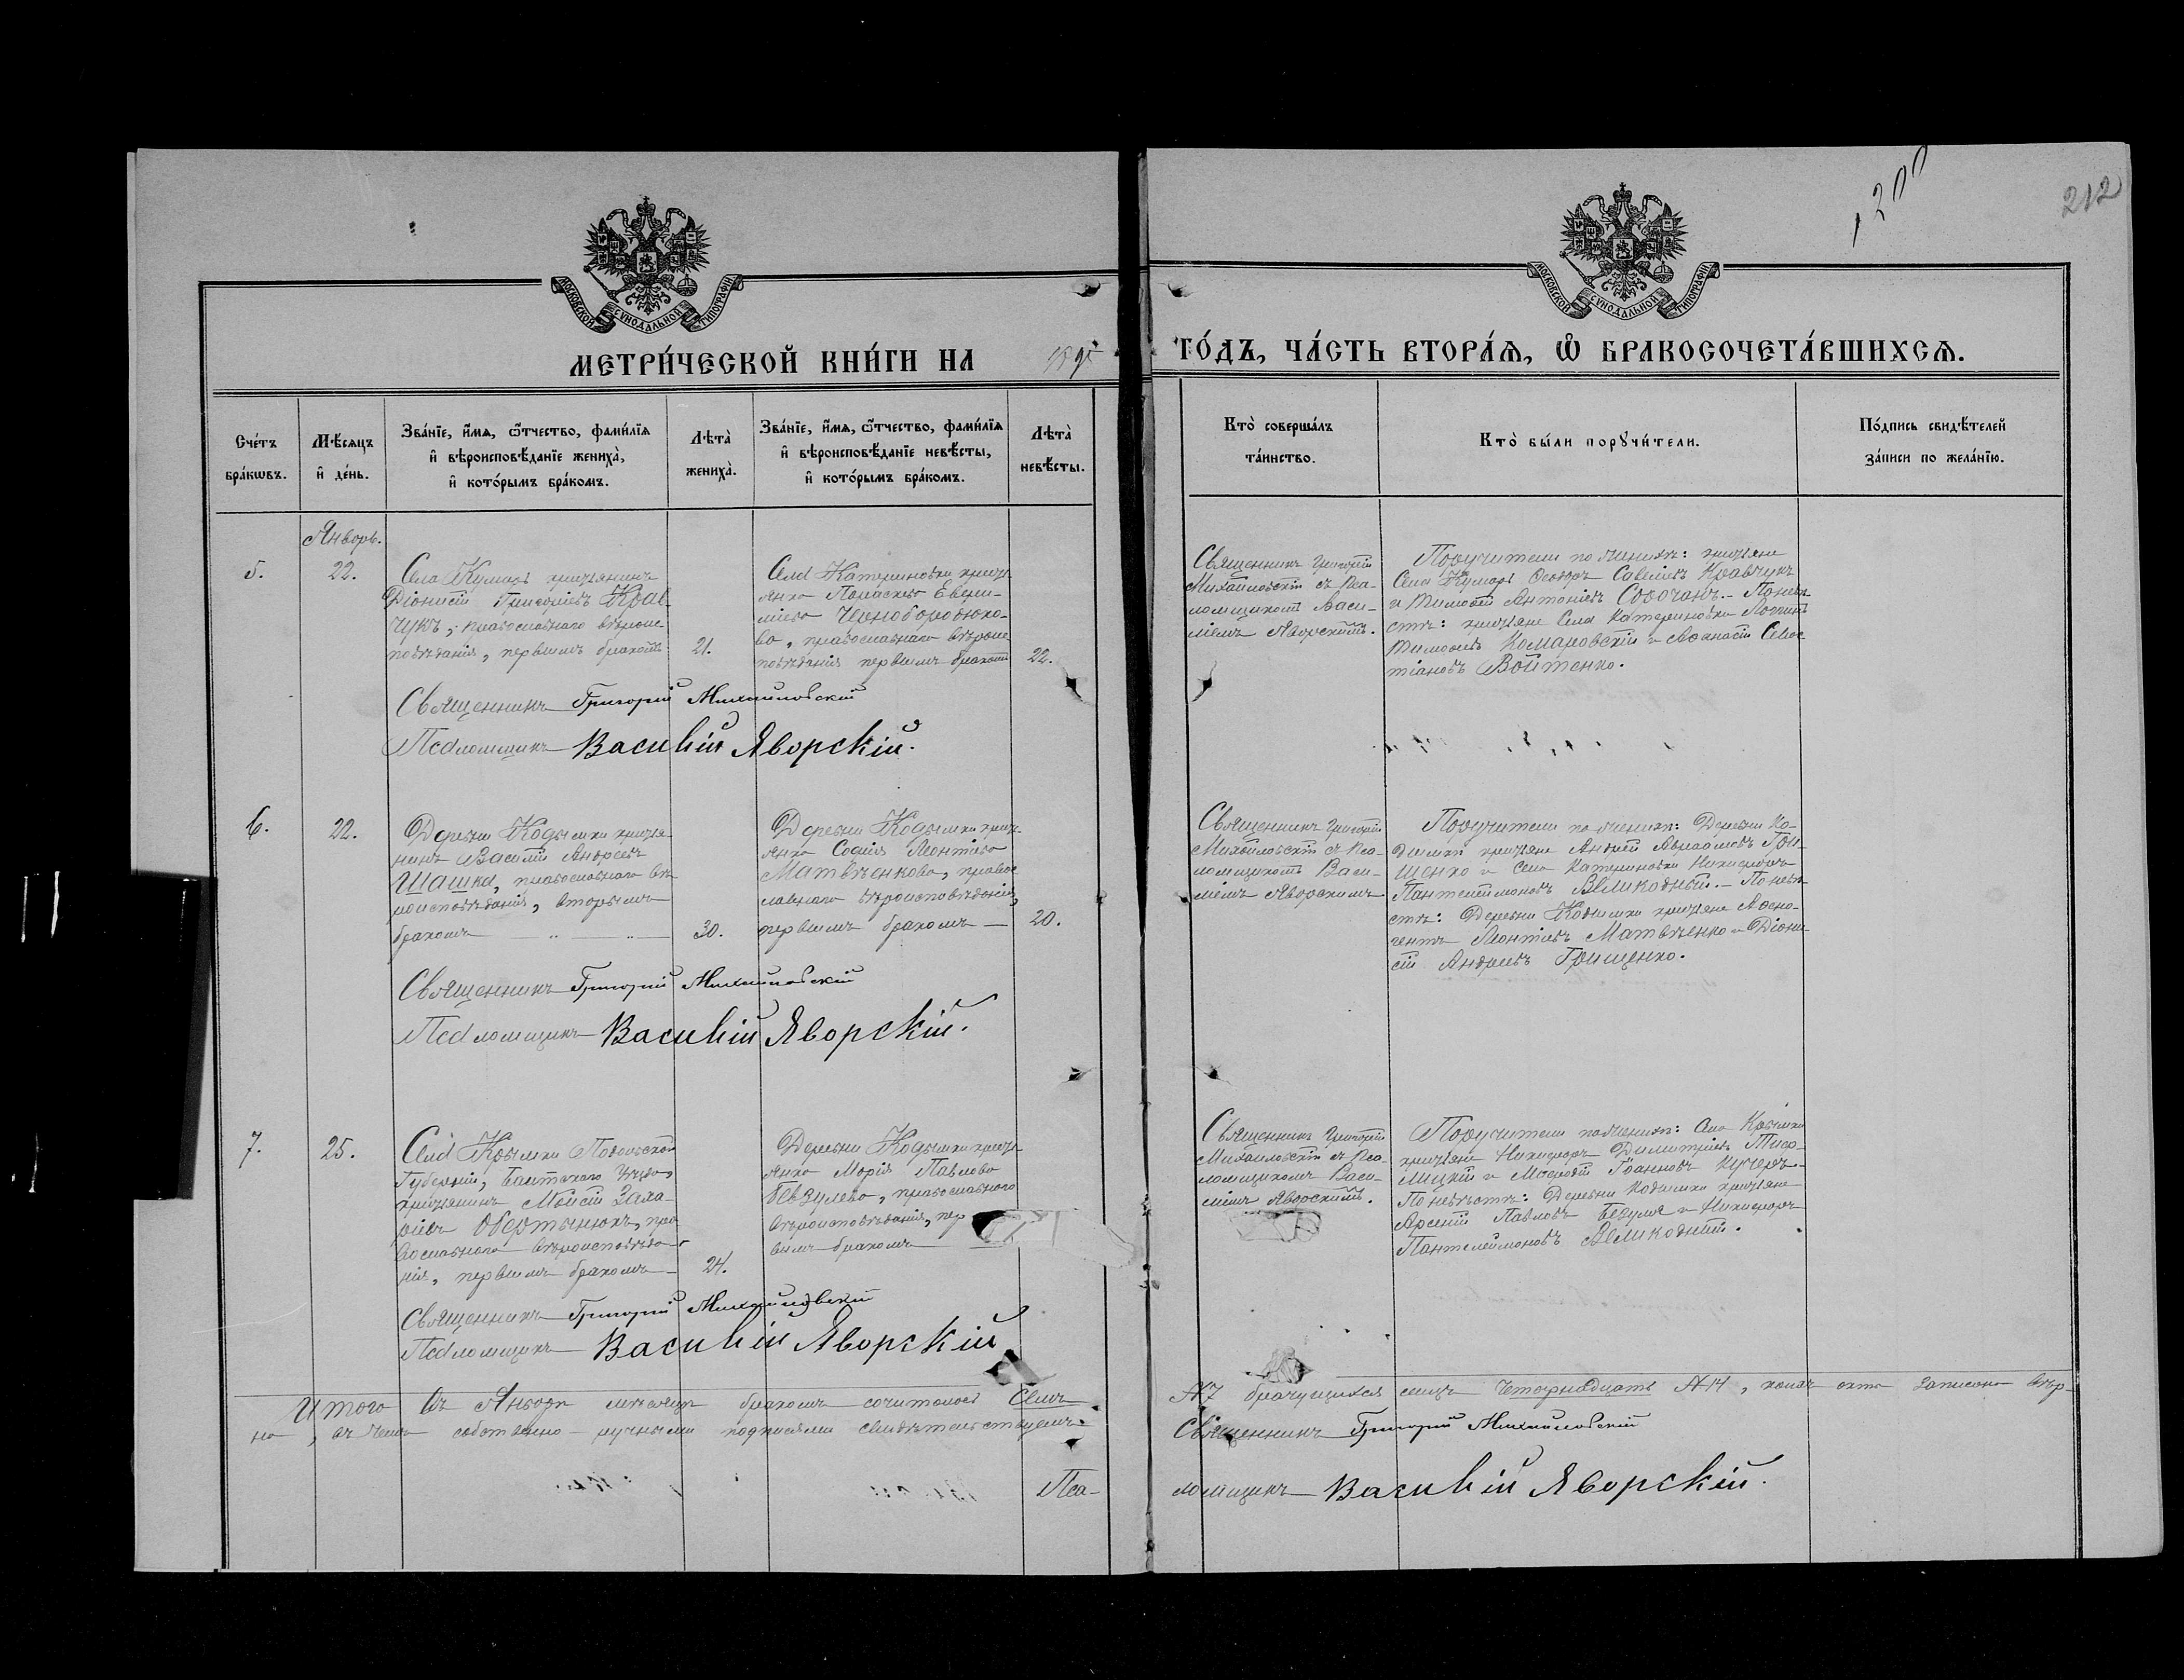 1200
212
МОСКОВСКОЙ СУНОДАЛЬНОЙ ТИПОГРАФІИ
МОСКОВСКОЙ СУНОДАЛЬНОЙ ТИПОГРАФІИ
МЕТРИ́ЧЕСКОЙ КНИ́ГИ НА 1895 ГО́ДЪ, ЧА́СТЬ ВТОРА́Я, Ѽ БРАКОСОЧЕТА́ВШИХСЯ.
Сче́тъ
бра́кѡвъ.
Мѣ́сяцъ
и҆ де́нь.
Зва́нїе, и҆́мя, ѻ҆́тчество, фамі́лїя
и҆ вѣроисповѣ́данїе жениха̀,
и҆ кото́рымъ бра́комъ.
Лѣта̀
жениха̀.
Зва́нїе, и҆́мя, ѻ҆́тчество, фамі́лїя
и҆ вѣроисповѣ́данїе невѣ́сты,
и҆ кото́рымъ бра́комъ.
Лѣта̀
невѣ́сты.
Кто̀ соверша́лъ
та́инство.
Кто̀ бы́ли порꙋчи́тели.
По́дпись свидѣ́телей
за́писи по жела́нїю.
Январь.
5.
22.
Села Кумаръ крестьянинъ
Діонисій Григоріевъ Крав-
чукъ, православнаго вѣроис-
повѣданія, первымъ бракомъ
21.
Села Катериновки кресть-
янка Параскева Евѳи-
міева Чернобородюко-
ва, православнаго вѣроис-
повѣданія первымъ бракомъ
22.
Священникъ Григорій
Михайловскій съ Пса-
ломщикомъ Васи-
ліемъ Яворскимъ.
Поручители по женихѣ: крестьяне
Села Кумаръ Ѳеодоръ Савеліевъ Кравчукъ
и Тимоѳей Антоніевъ Сорочанъ. - По невѣ-
стѣ: крестьяне Села Катериновки Логинъ
Тимоѳеевъ Комаровскій и Аѳанасій Севас-
тіановъ Войтенко.
Священникъ Григорій Михайловскій
Псаломщикъ Василій Яворскій.
6.
22.
Деревни Кодымки крестья-
нинъ Василій Андреевъ
Шашка, православнаго вѣ-
роисповѣданія, вторымъ
бракомъ
30.
Деревни Кодымки кресть-
янка Софія Леонтіева
Матвѣенкова, правос-
лавнаго вѣроисповѣданія,
первымъ бракомъ
20.
Священникъ Григорій
Михайловскій съ Пса-
ломщикомъ Васи-
ліемъ Яворскимъ
Поручители по женихѣ: Деревни Ко-
дымки крестьяне Андрей Авраамовъ Гри-
щенко и Села Катериновки Никифоръ
Пантелеймоновъ Великодный. - По невѣ-
стѣ: Деревни Кодымки крестьяне Аѳено-
генъ Леонтіевъ Матвѣенко и Діони-
сій Андреевъ Грищенко.
Священникъ Григорій Михайловскій
Псаломщикъ Василій Яворскій.
7.
25.
Села Крымки Подольской
Губерніи, Балтскаго Уѣзда,
крестьянинъ Мойсій Заха-
ріевъ Обертынюкъ, пра-
вославнаго вѣроисповѣда-
нія, первымъ бракомъ
24.
Деревни Кодымки кресть-
янка Марія Павлова
Безулева, православнаго
вѣроисповѣданія, пер-
вымъ бракомъ
Священникъ Григорій
Михайловскій съ Пса-
ломщикомъ Васи-
ліемъ Яворскимъ.
Поручители по женихѣ: Села Крымки
крестьяне Никифоръ Димитріевъ
и Іоанновъ Кучеръ.
По невѣстѣ: Деревни Кодымки крестьяне
Арсеній Павловъ Безуля и Никифоръ
Пантелеймоновъ Великодный.
Священникъ Григорій Михайловскій
Псаломщикъ Василій Яворскій
Итого въ Январѣ мѣсяцѣ бракомъ сочиталось Семь № 7 брачущихся лицъ четырнадцать № 14, записано вѣр-
но, въ чемъ собственно-ручными подписями свидѣтельствуемъ. Священникъ Григорій Михайловскій
Пса-
ломщикъ Василій Яворскій.